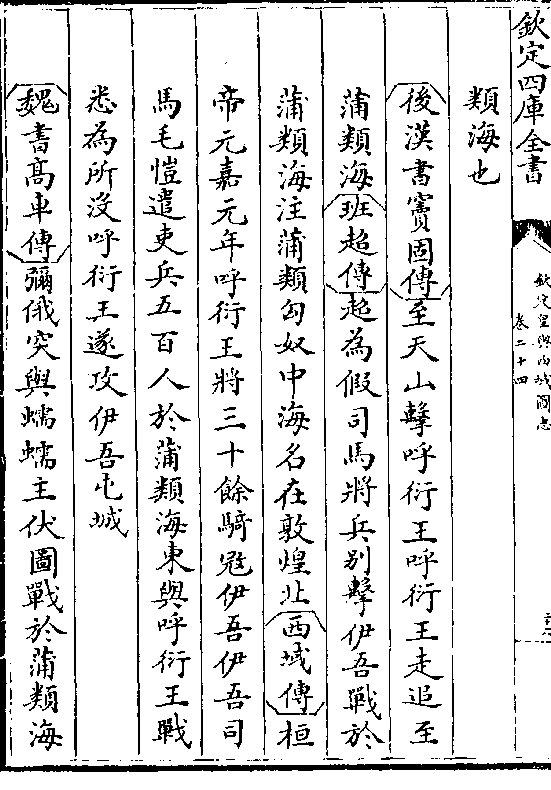 欽定四庫全書
欽定皇輿西域圖志
卷二十四
類海也
後漢書竇固傳至天山擊呼衍王呼衍王走追至
蒲類海班超傳超為假司馬將兵別擊伊吾戰於
蒲類海注蒲類匈奴中海名在敦煌北西域傳桓
帝元嘉元年呼衍王將三十餘騎宼伊吾伊吾司
馬毛愷遣吏兵五百人於蒲類海東與呼衍王戰
悉為所没呼衍王遂攻伊吾屯城
魏書髙車傳彌俄突與蠕蠕主伏圖戰於蒲類海